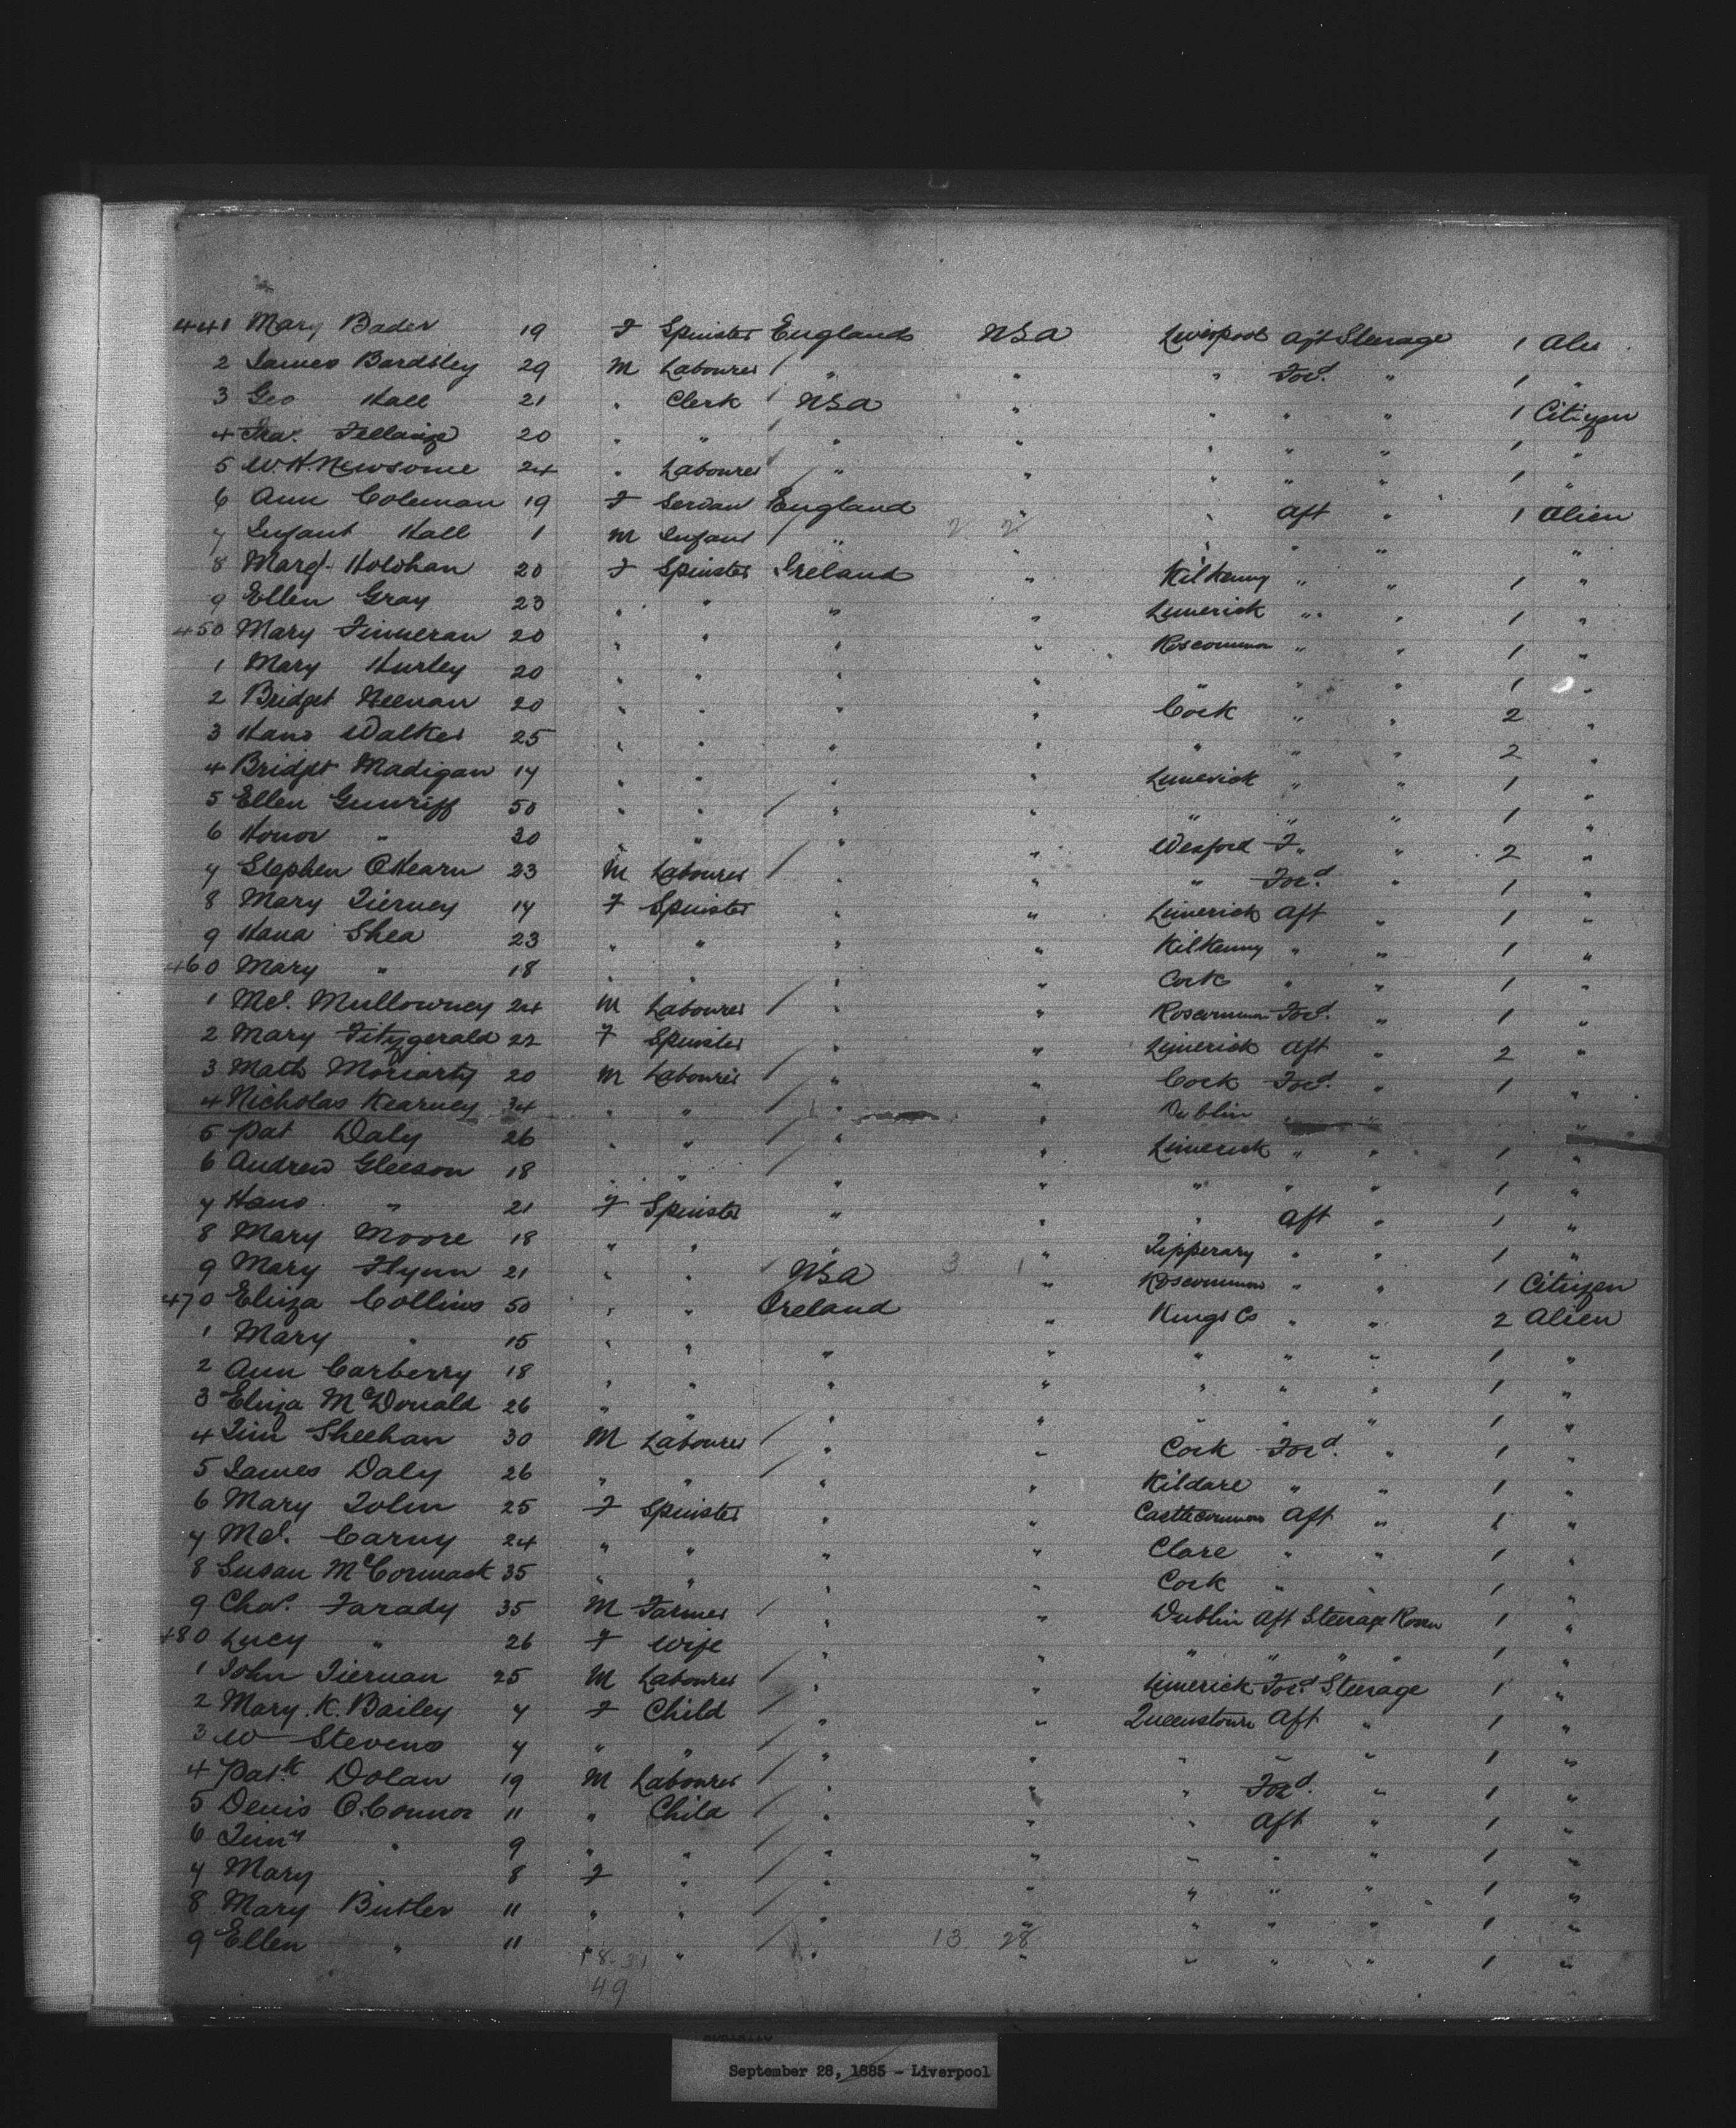 441 Mary Bader 19 F Spinster England USA Liverpool Aft Steerage 1 Alie
2 James Bardsley 29 M Labourer " " " Ford. " 1 "
3 Geo Hall 21 " Clerk USA " " " " 1 Citizen
4 20 " " " " " " " 1 "
5 W H. Newsome 24 " Labourer " " " " " 1 "
6 Ann Coleman 19 F Servan England " " Aft " 1 Alien
7 Infant Hall 1 M Infant " 2 2 " " " " "
8 Margt. Holohan 20 F Spinster Ireland " Kilkenny " " 1 "
9 Ellen Gray 23 " " " " Limerick " " 1 "
450 Mary Finneran 20 " " " " Roscommon " " 1 "
1 Mary Hurley 20 " " " " " " " 1 "
2 Bridget Heenan 20 " " " " Cork " " 2 "
3 Hano Walker 25 " " " " " " " 2 "
4 Bridget Madigan 17 " " " " Limerick " " 1 "
5 Ellen 50 " " " " " " " 1 "
6 Honor " 30 " " " " Wexford F " " 2 "
7 Stephen O'Hearn 23 M Labourer " " " Ford. " 1 "
8 Mary Tierney 17 F Spinster " " Limerick Aft " 1 "
9 Hana Shea 23 " " " " Kilkenny " " 1 "
460 Mary " 18 " " " " Cork " " 1 "
1 Ml. Mullowney 24 M Labourer " " Roscommon Ford. " 1 "
2 Mary Fitzgerald 22 F Spinster " " Limerick Aft " 2 "
3 Math Moriarty 20 M Labourer " " Cork Ford. " 1 "
4 Nicholas Kearney 34 " " " " Dublin " " "
5 Pat Daly 26 " " " " Limerick " " 1 "
6 Andrew Gleeson 18 " " " " " " " 1 "
7 Hano " 21 F Spinster " " " Aft " 1 "
8 Mary Moore 18 " " " " Tipperary " " 1 "
9 Mary Flynn 21 " " USA 3 1 " Roscommon " " 1 Citizen
470 Eliza Collins 50 " " Ireland " Kings Co " " 2 Alien
1 Mary " 15 " " " " " " " 1 "
2 Ann Carberry 18 " " " " " " " 1 "
3 Eliza McDonald 26 " " " " " " " 1 "
4 Tim Sheehan 30 M Labourer " " Cork Ford. " 1 "
5 James Daly 26 " " " " Kildare " " 1 "
6 Mary Tobin 25 F Spinster " " Aft " 1 "
7 Ml. Carny 24 " " " " Clare " " 1 "
8 Susan McCormack 35 " " " " Cork " " 1 "
9 Chas. Farady 35 M Farmer " " Dublin Aft Steerage Room 1 "
480 Lucy " 26 F Wife " " " " " " 1 "
1 John Tiernan 25 M Labourer " " Limerick Ford. Steerage 1 "
2 Mary. K. Bailey 7 F Child " " Queenstown Aft " 1 "
3 W Stevens 7 " " " " " " " 1 "
4 Patk Dolan 19 M Labourer " " " Ford. " 1 "
5 Denis O'Connor 11 " Child " " " Aft " 1 "
6 Timy " 9 " " " " " " " 1 "
7 Mary " 8 F " " " " " " 1 "
8 Mary Butler 11 " " " " " " " 1 "
9 Ellen " 11 " " " 13 28 " " " " 1 "
18-31
49
September 28, 1885 - Liverpool